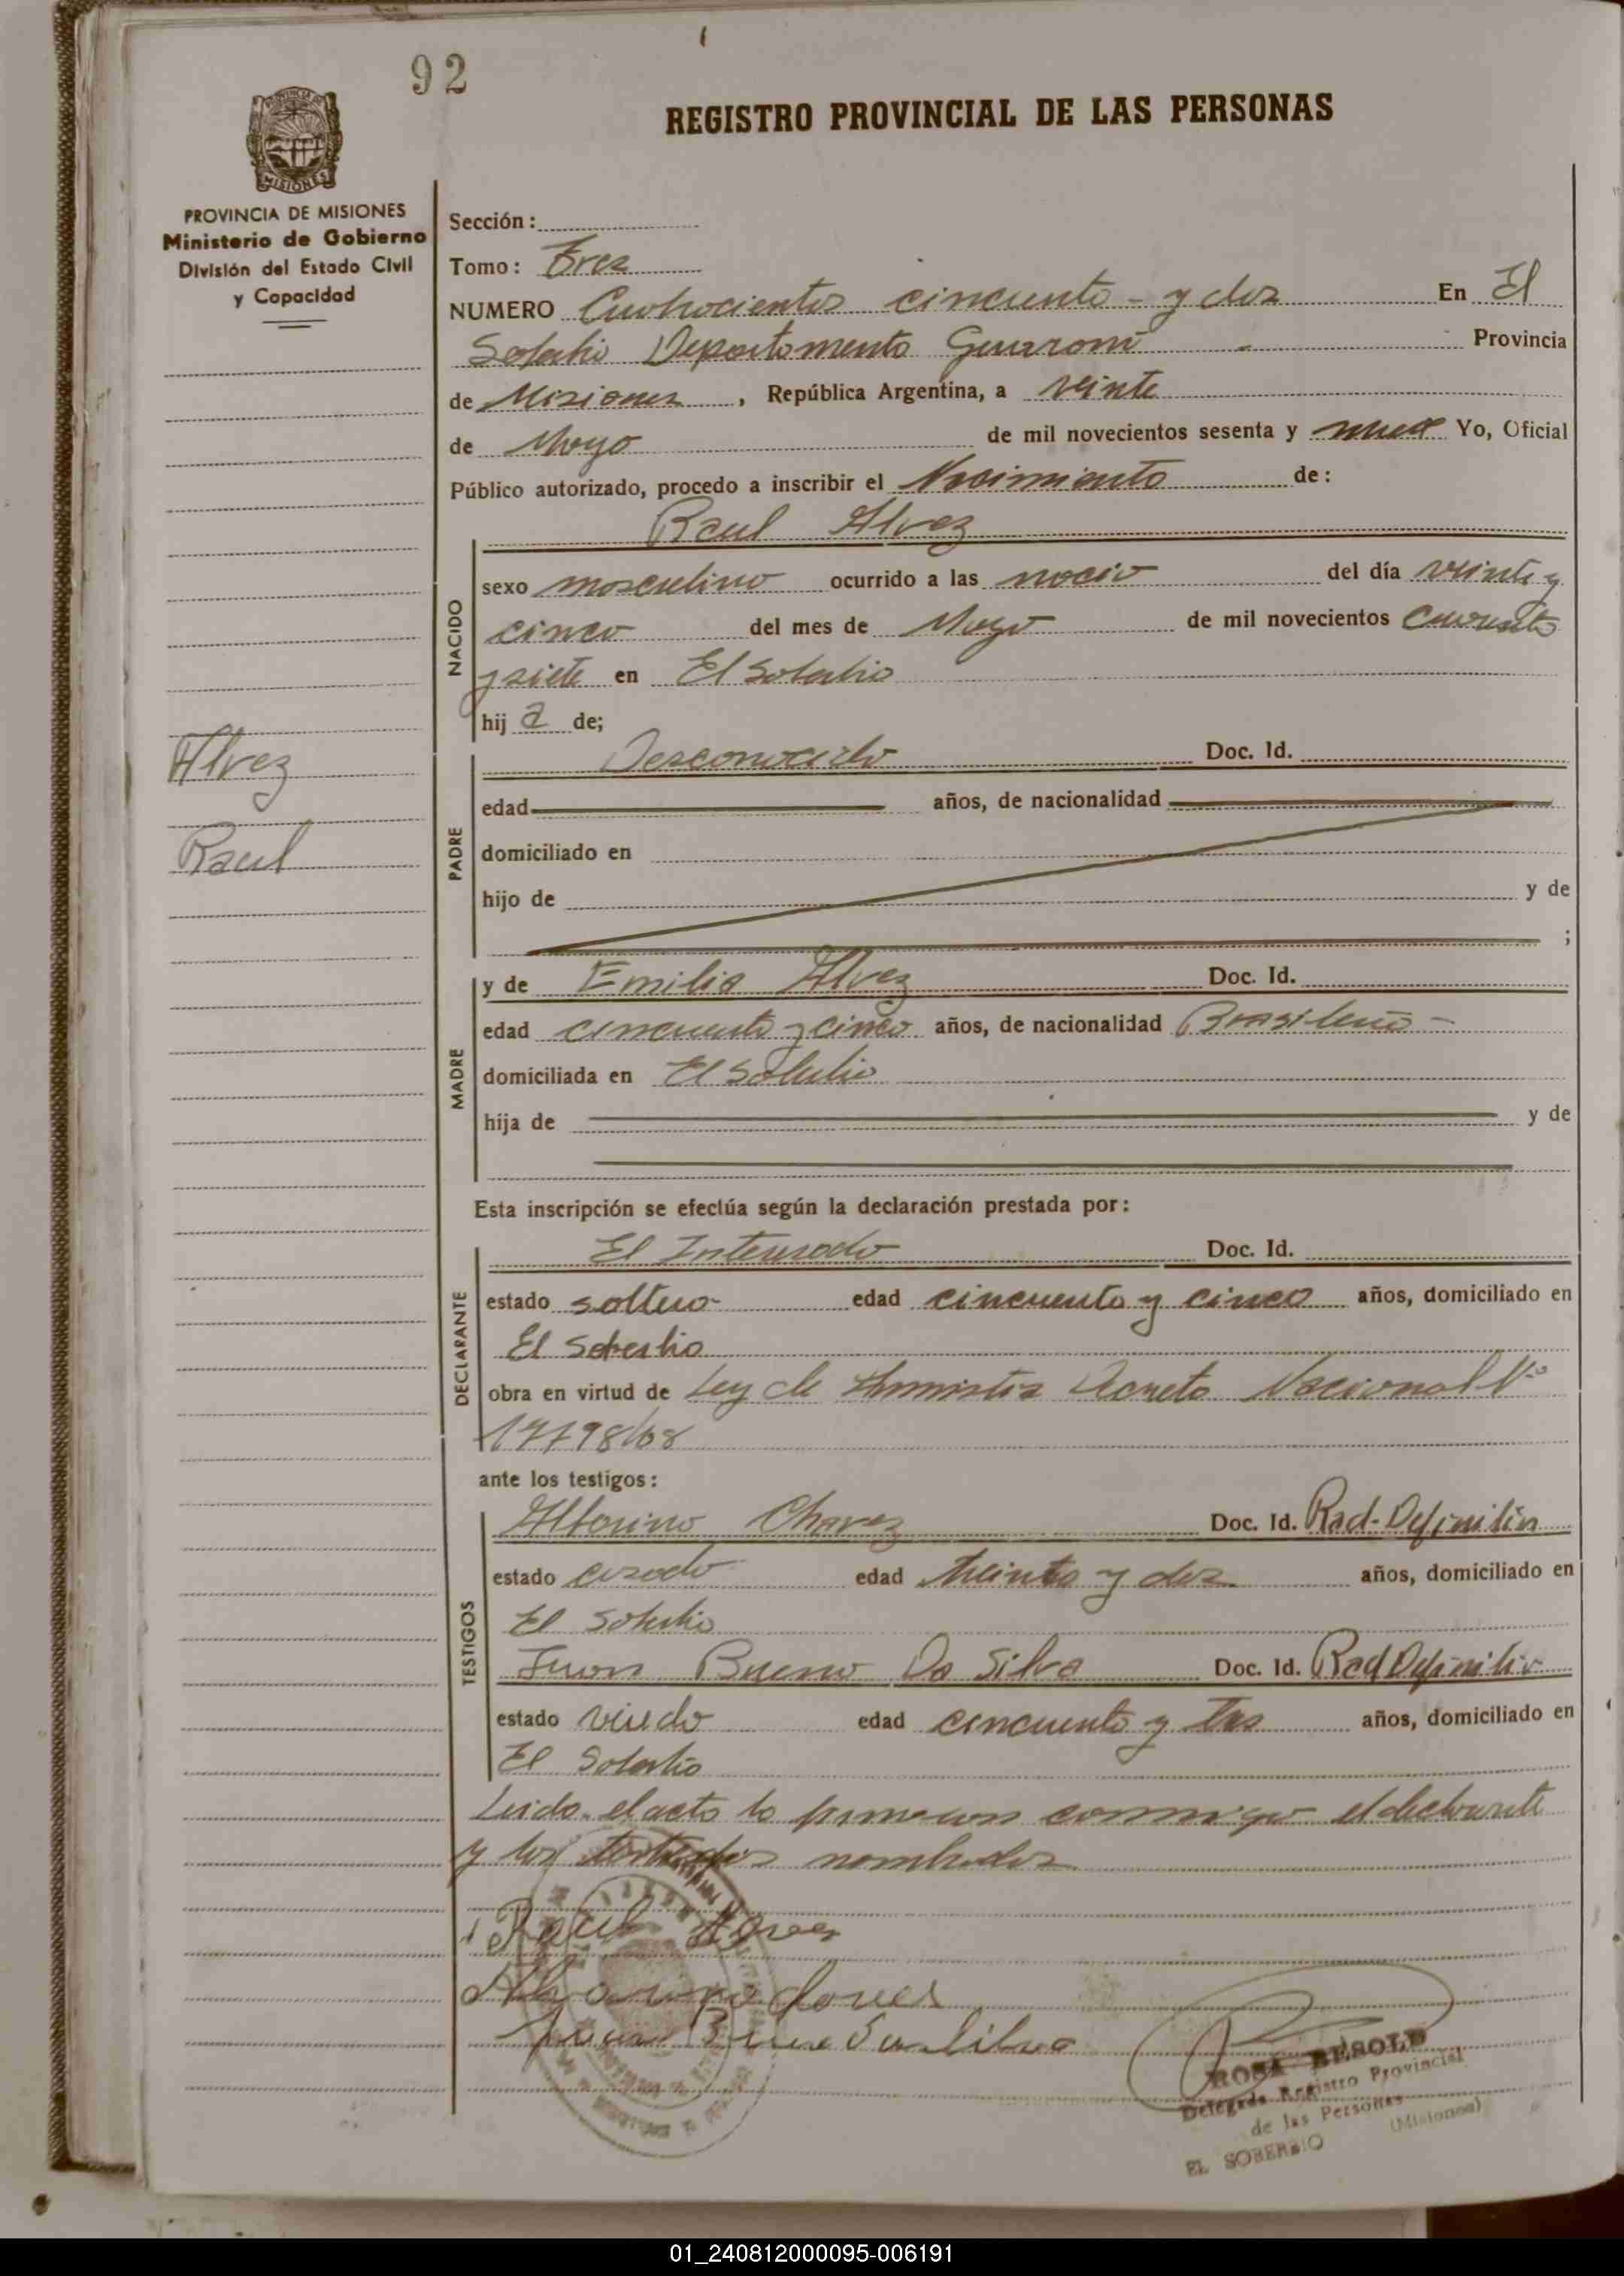 92
REGISTRO PROVINCIAL DE LAS PERSONAS
PROVINCIA DE MISIONES
Ministerio de Gobierno
División del Estado Civil
y Capacidad
Sección:
Tomo: Tres
NUMERO Cuatrocientos cincuenta - y dos En El
Soberbio Departamento Guaraní Provincia
de Misiones, República Argentina, a veinte
de Mayo de mil novecientos sesenta y nueve Yo, Oficial
Público autorizado, procedo a inscribir el Nacimiento de:
Raul Alvez
NACIDO
sexo masculino ocurrido a las nacio del día veinte y
cinco del mes de Mayo de mil novecientos cuarenta
y siete en El Soberbio
hij a de;
Alvez
Raul
PADRE
Desconocido Doc. Id.
edad años, de nacionalidad
domiciliado en
hijo de y de
;
MADRE
y de Emilia Alvez Doc. Id.
edad cincuenta y cinco años, de nacionalidad Brasileña -
domiciliada en El Soberbio
hija de y de
Esta inscripción se efectúa según la declaración prestada por:
DECLARANTE
El Interesado Doc. Id.
estado soltero edad cincuenta y cinco años, domiciliado en
El Soberbio
obra en virtud de Ley de Amnistia Decreto Nacional Nº
17798/68
ante los testigos:
TESTIGOS
Albarino Chavez Doc. Id. Rad-Definitiva
estado casado edad treinta y dos años, domiciliado en
El Soberbio
Juan Bueno Da Silva Doc. Id. Rad Definitiva
estado viudo edad cincuenta y tres años, domiciliado en
El Soberbio
Leida el acta la firmaron conmigo el declarante
y los testigos nombrados
Raul
Juan
ROSA BESOLD
Delegada Registro Provincial
de las Personas
EL SOBERBIO (Misiones)
01_240812000095-006191